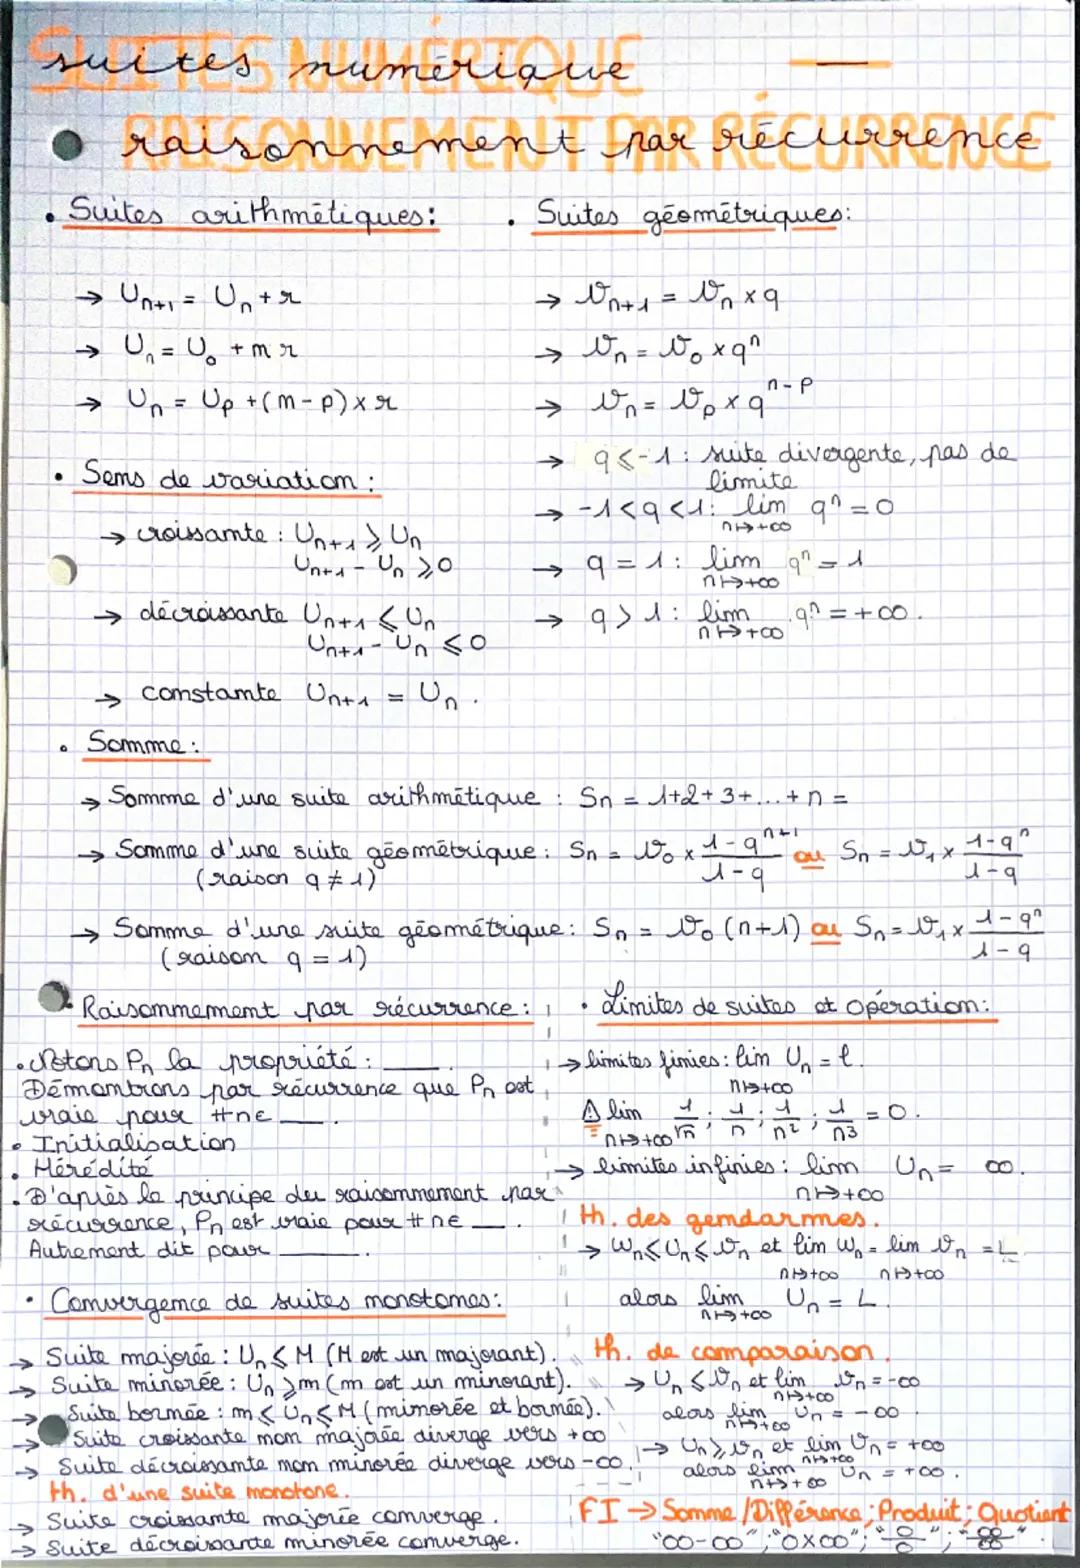 SUITES NUMÉRIQUE
suites numérique
RAISONNEMENT PAR RÉCURRENCE
raisonnement par récurrence
• Suites arithmétiques:
→ Un+1 = Un + r
→ Un = U0 + n r
→ Un = Up + (n-p) × r
• Sens de variation :
→ croissante : Un+1 ⩾ Un
Un+1 - Un ⩾ 0
→ décroissante Un+1 ⩽ Un
Un+1 - Un ⩽ 0
→ constante Un+1 = Un.
• Suites géométriques:
→ Vn+1 = Vn × q
→ Vn = V0 × q^n
→ Vn = Vp × q^n-p
→ q ⩽ -1 : suite divergente, pas de
limite
→ -1 < q < 1 : lim q^n = 0
n↦+∞
→ q = 1 : lim q^n = 1
n↦+∞
→ q > 1 : lim q^n = +∞.
n↦+∞
• Somme :
→ Somme d'une suite arithmétique : Sn = 1+2+3+...+n =
→ Somme d'une suite géométrique : Sn = V0 × (1-q^n+1)/(1-q) ou Sn = V1 × (1-q^n)/(1-q)
(raison q ≠ 1)
→ Somme d'une suite géométrique : Sn = V0 (n+1) ou Sn = V1 × (1-q^n)/(1-q)
(raison q = 1)
• Raisonnement par récurrence :
• Notons Pn la propriété : ____.
Démontrons par récurrence que Pn est
vraie pour #n∈ ___.
• Initialisation
• Hérédité
• D'après le principe du raisonnement par
récurrence, Pn est vraie pour #n∈ ___.
Autrement dit pour ____.
• Convergence de suites monotones :
→ Suite majorée : Un ⩽ M (M est un majorant).
→ Suite minorée : Un ⩾ m (m est un minorant).
→ Suite bornée : m ⩽ Un ⩽ M (minorée et bornée).
→ Suite croissante non majorée diverge vers +∞
→ Suite décroissante non minorée diverge vers -∞.
th. d'une suite monotone.
→ Suite croissante majorée converge.
→ Suite décroissante minorée converge.
• Limites de suites et opération:
→ limites finies : lim Un = l.
n↦+∞
⚠ lim 1/√n ; 1/n ; 1/n² ; 1/n³ = 0.
n↦+∞
→ limites infinies : lim Un = ∞.
n↦+∞
th. des gendarmes.
→ Wn ⩽ Un ⩽ Vn et lim Wn = lim Vn = L
n↦+∞ n↦+∞
alors lim Un = L.
n↦+∞
th. de comparaison.
→ Un ⩽ Vn et lim Vn = -∞
n↦+∞
alors lim Un = -∞
n↦+∞
→ Un ⩾ Vn et lim Vn = +∞
n↦+∞
alors lim Un = +∞.
n↦+∞
FI → Somme/Différence ; Produit ; Quotient
"∞-∞" ; "0×∞" ; "0/0" ; "∞/∞"